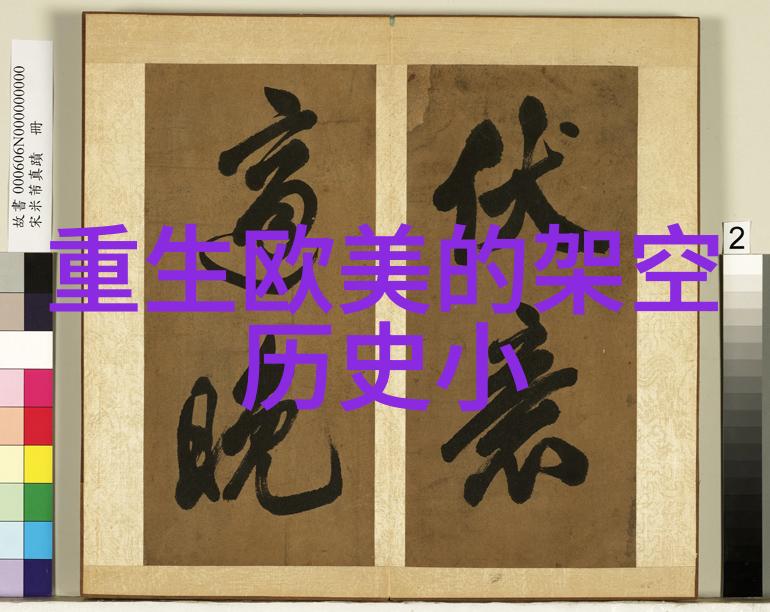 故書 000606N000000000
宋米芾真蹟 冊
重生欧美的架空
历史小
伏
晚
2